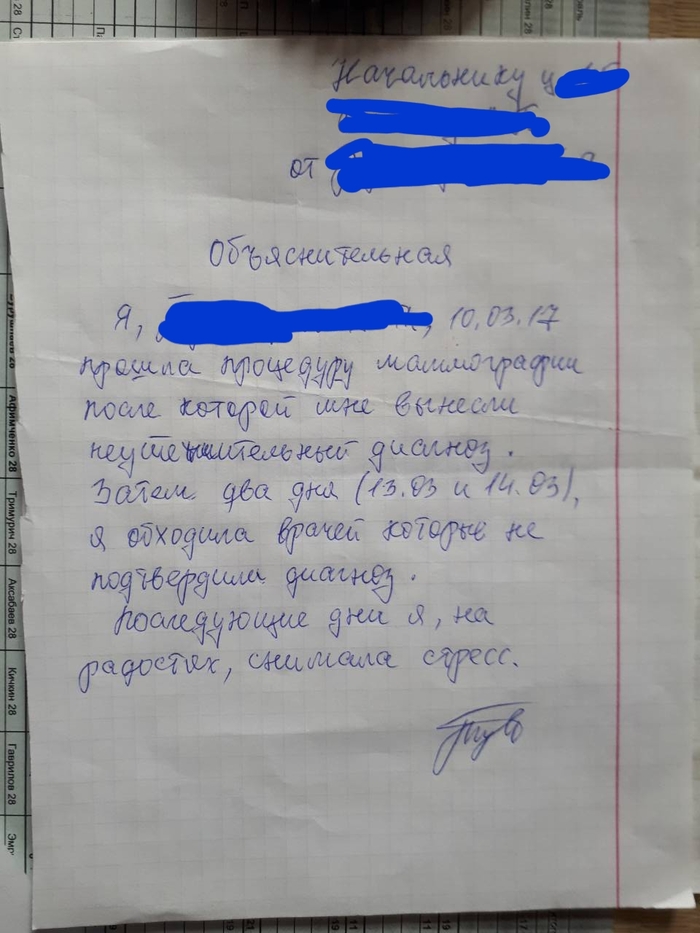 Начальнику ц
от
Объяснительная
Я, 10.03.17
прошла процедуру маммографии
после которой мне вынесли
неутешительный диагноз.
Затем два дня (13.03 и 14.03),
я обходила врачей которые не
подтвердили диагноз.
Последующие дни я, на
радостях, снимала стресс.
Афимченко 28
Тримурич 28
Аксабаев 28
Кичкин 28
Гаврилов 28